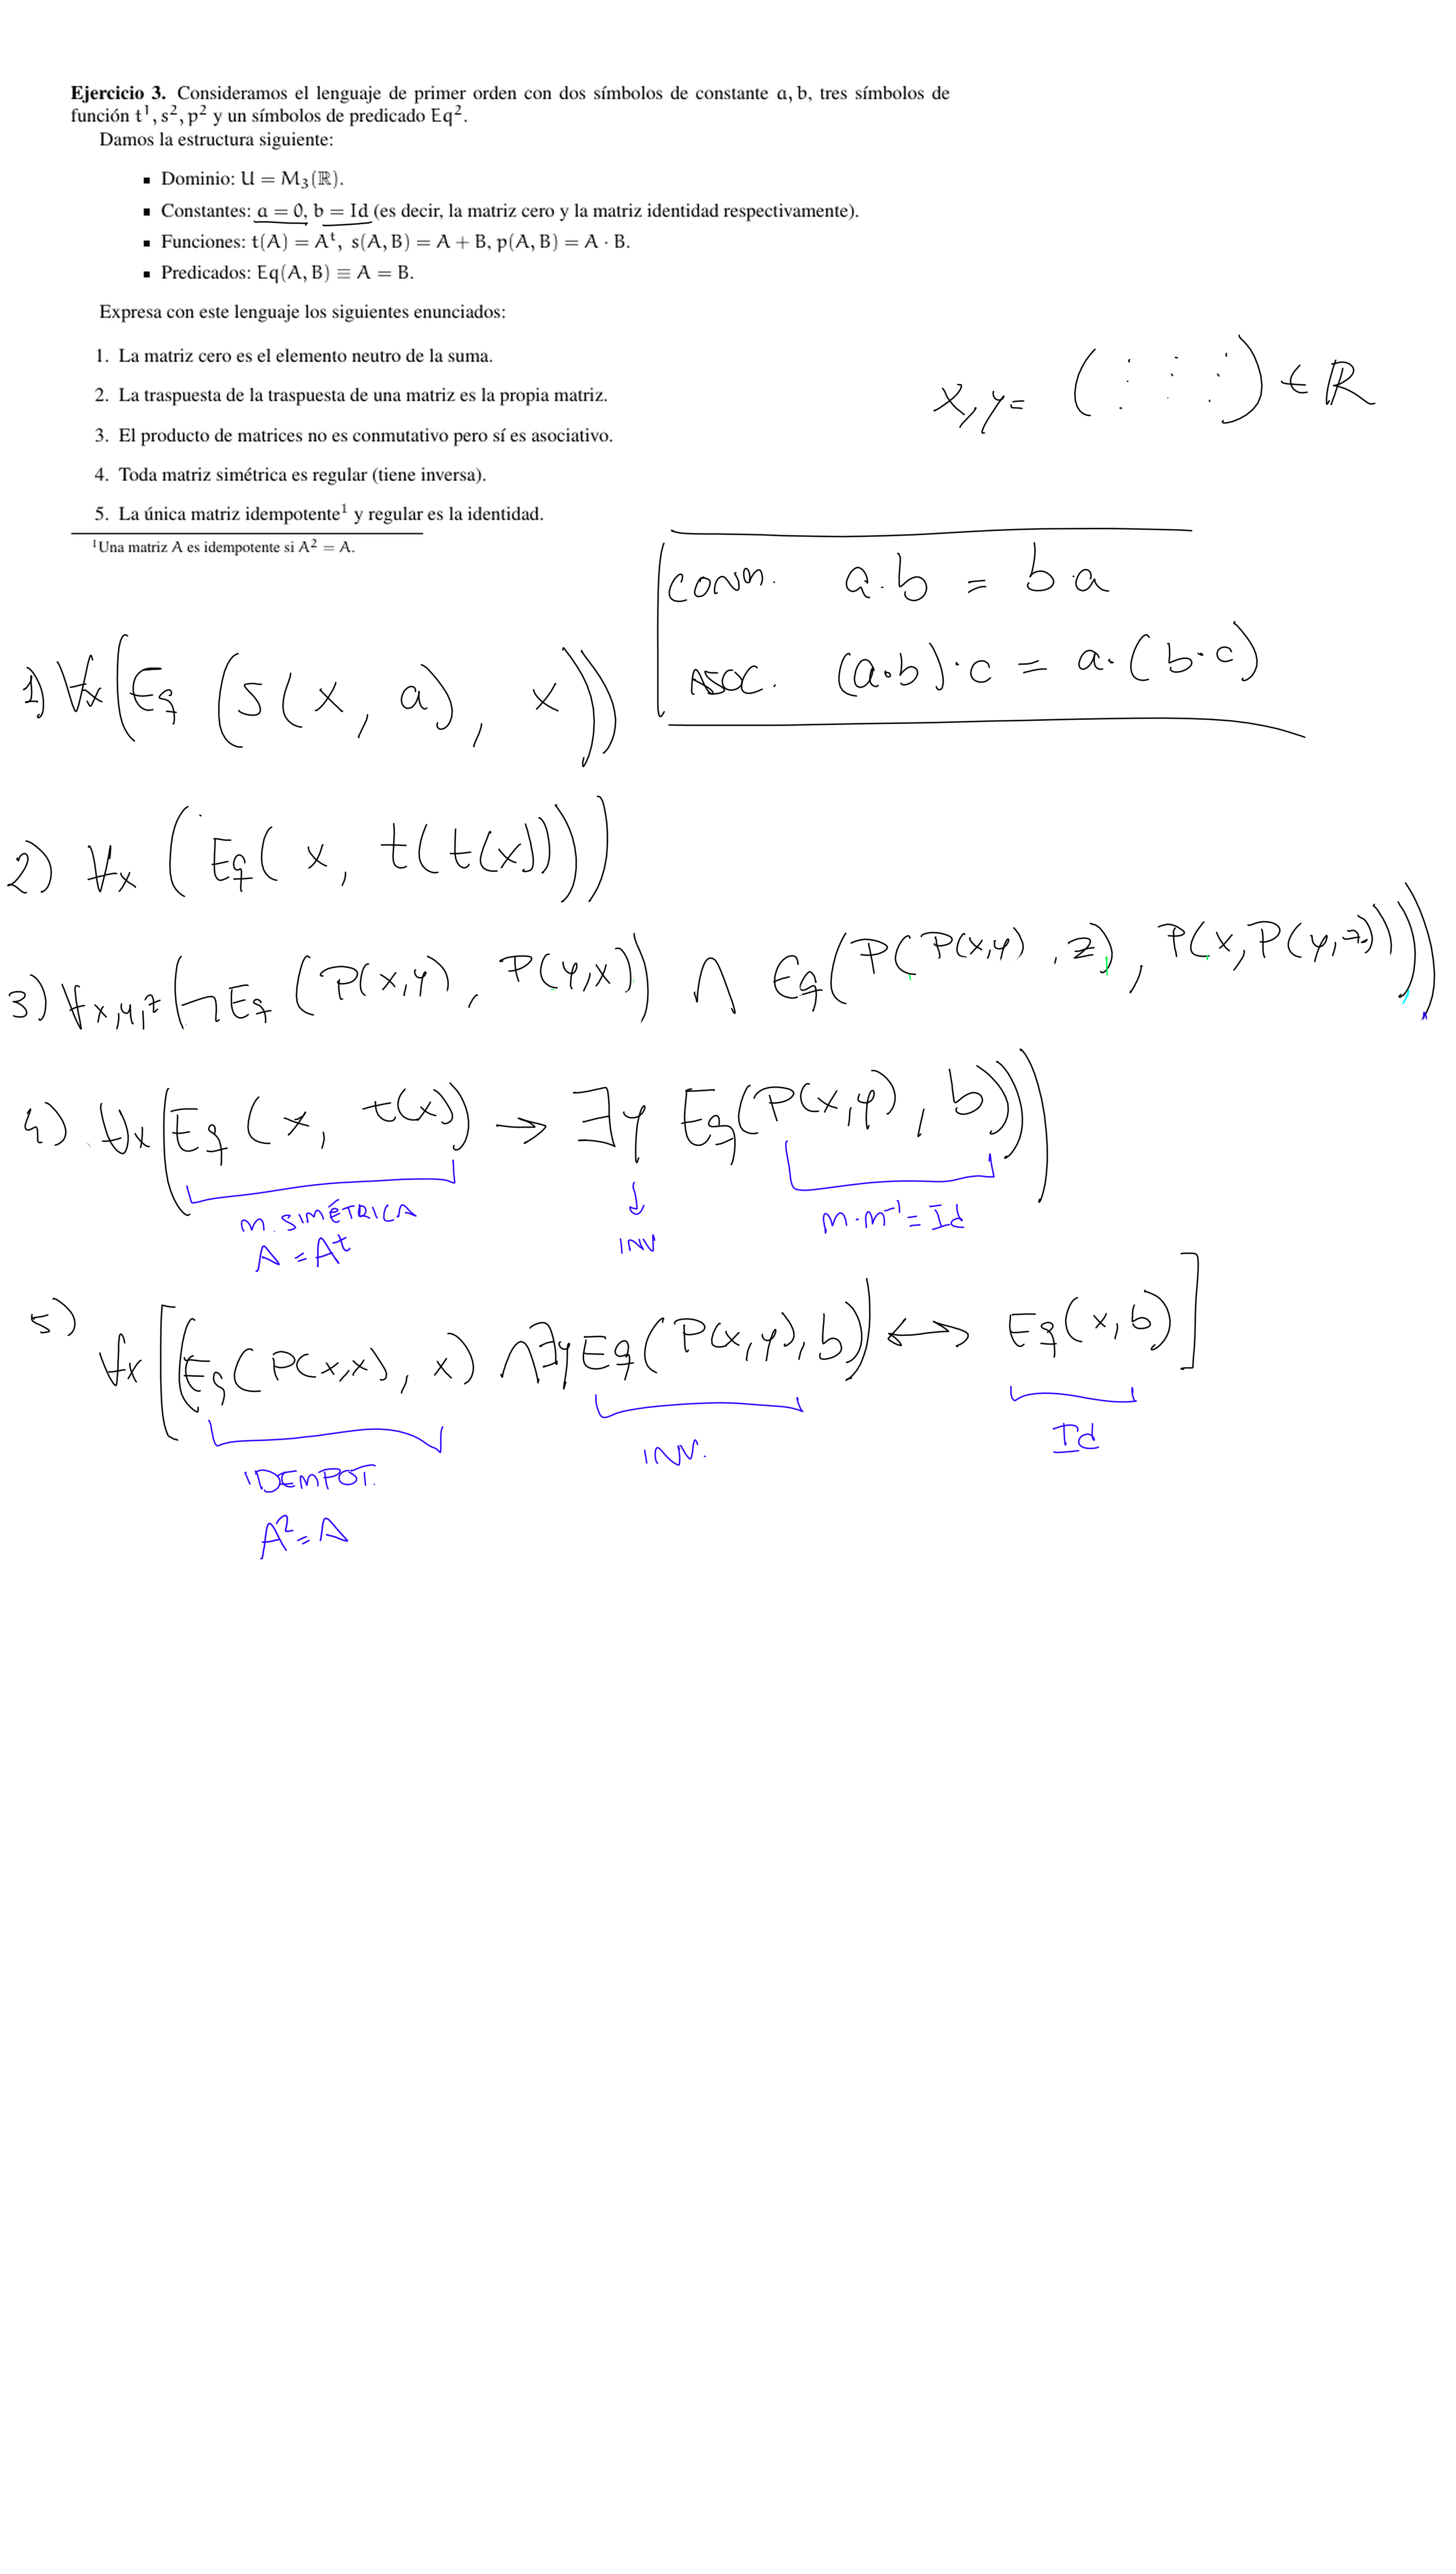 Ejercicio 3. Consideramos el lenguaje de primer orden con dos símbolos de constante a, b, tres símbolos de
función t¹, s², p² y un símbolos de predicado Eq².
Damos la estructura siguiente:
▪ Dominio: U = M₃(ℝ).
▪ Constantes: a = 0, b = Id (es decir, la matriz cero y la matriz identidad respectivamente).
▪ Funciones: t(A) = Aᵗ, s(A, B) = A + B, p(A, B) = A · B.
▪ Predicados: Eq(A, B) ≡ A = B.
Expresa con este lenguaje los siguientes enunciados:
1. La matriz cero es el elemento neutro de la suma.
2. La traspuesta de la traspuesta de una matriz es la propia matriz.
3. El producto de matrices no es conmutativo pero sí es asociativo.
4. Toda matriz simétrica es regular (tiene inversa).
5. La única matriz idempotente¹ y regular es la identidad.
¹Una matriz A es idempotente si A² = A.
x, y = ( ⋮ ⋮ ⋮ ) ∈ R
CONM. a·b = b·a
ASOC. (a·b)·c = a·(b·c)
1) ∀x(Eq(s(x, a), x))
2) ∀x (Eq(x, t(t(x))))
3) ∀x,y,z(¬Eq(P(x,y), P(y,x)) ∧ Eq(P(P(x,y), z), P(x,P(y,z))))
4) ∀x(Eq(x, t(x)) → ∃y Eq(P(x,y), b))
M. SIMÉTRICA
A = At
INV
M·M⁻¹ = Id
5) ∀x[(Eq(P(x,x), x) ∧ ∃y Eq(P(x,y), b)) ↔ Eq(x,b)]
IDEMPOT.
A² = A
INV.
Id